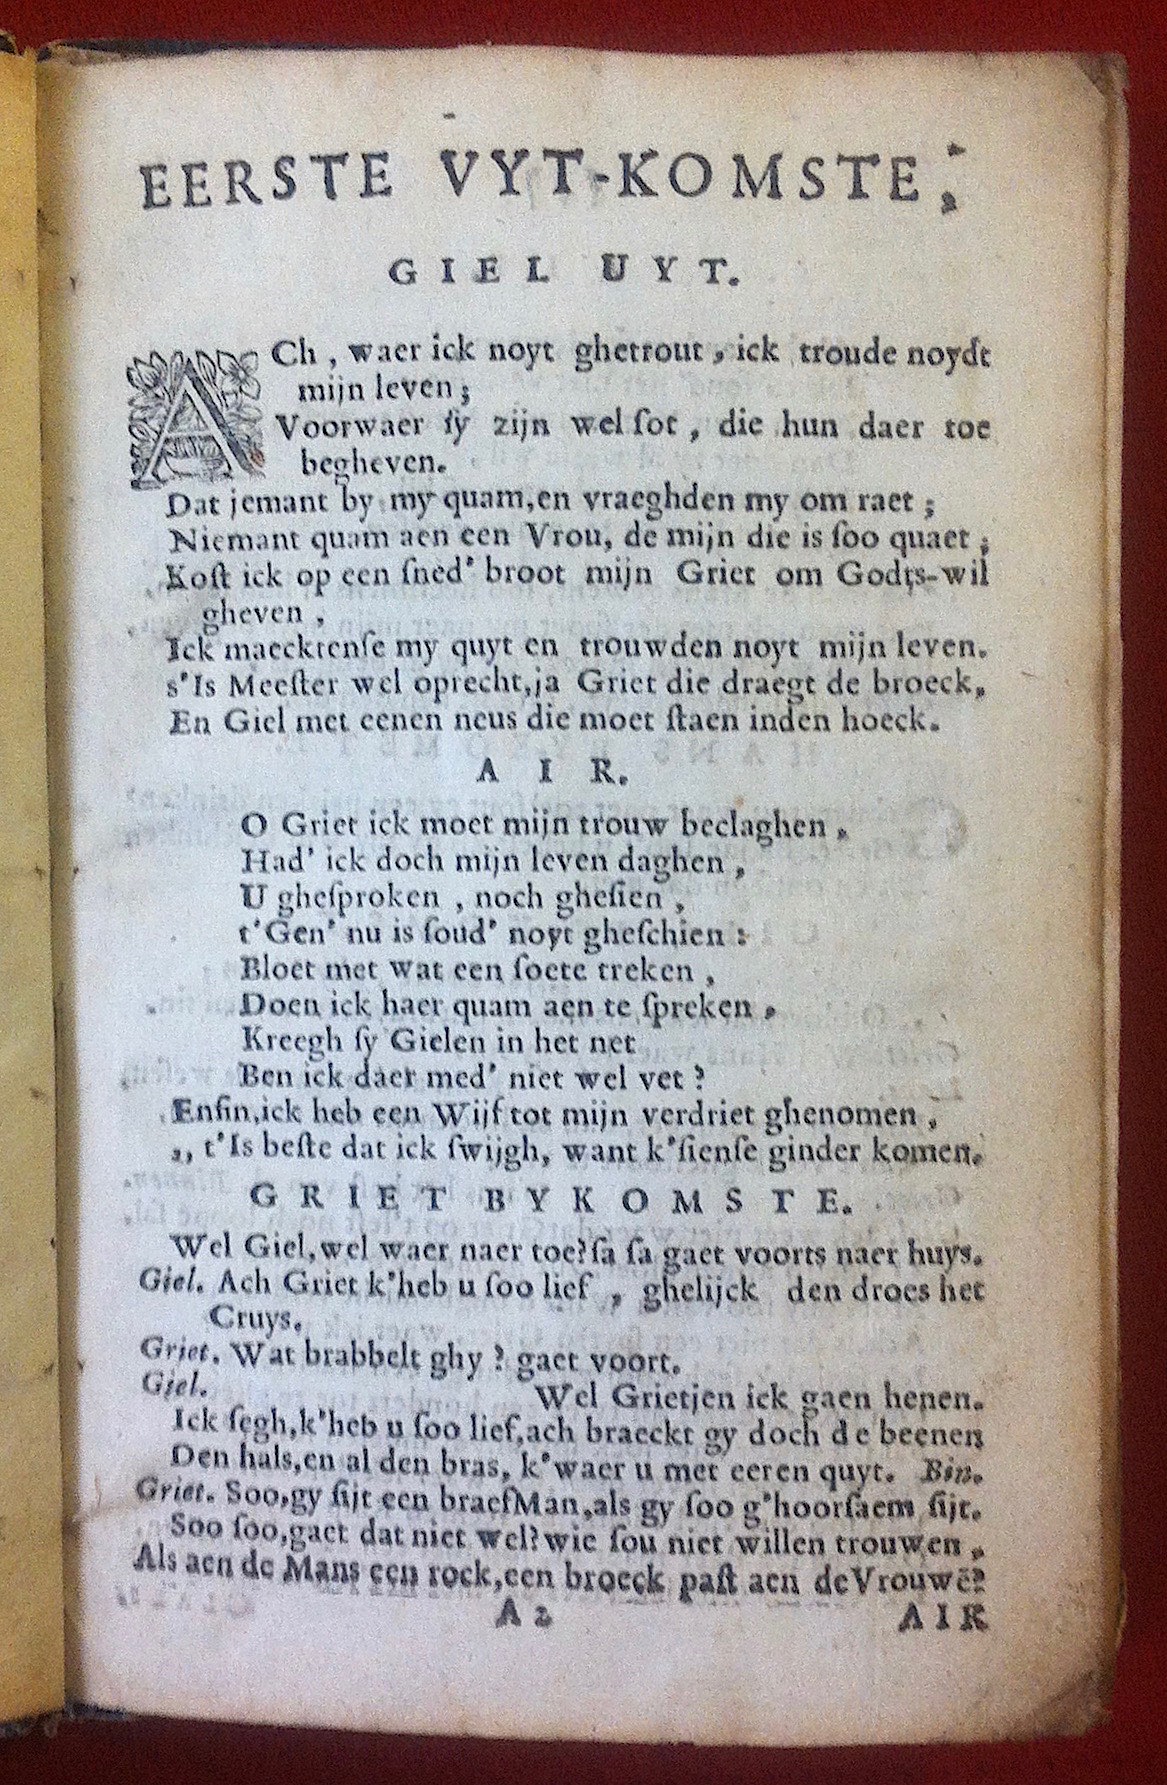 EERSTE VYT-KOMSTE,
GIEL UYT.
ACh, waer ick noyt ghetrout, ick troude noydt
mijn leven;
Voorwaer ſy zijn wel ſot, die hun daer toe
begheven.
Dat jemant by my quam,en vraeghden my om raet;
Niemant quam aen een Vrou, de mijn die is ſoo quaet;
Koſt ick op een ſned' broot mijn Griet om Godts-wil
gheven,
Ick maecktenſe my quyt en trouwden noyt mijn leven.
s'Is Meeſter wel oprecht,ja Griet die draegt de broeck,
En Giel met eenen neus die moet ſtaen inden hoeck.
AIR.
O Griet ick moet mijn trouw beclaghen,
Had' ick doch mijn leven daghen,
U gheſproken, noch gheſien,
t'Gen' nu is ſoud' noyt gheſchien:
Bloet met wat een ſoete treken,
Doen ick haer quam aen te ſpreken,
Kreegh ſy Gielen in het net
Ben ick daer med' niet wel vet?
Enfin,ick heb een Wijf tot mijn verdriet ghenomen,
,, t'Is beſte dat ick ſwijgh, want k'ſienſe ginder komen.
GRIET BYKOMSTE.
Wel Giel,wel waer naer toe?ſa ſa gaet voorts naer huys.
Giel. Ach Griet k'heb u ſoo lief, ghelijck den droes het
Cruys.
Griet. Wat brabbelt ghy? gaet voort.
Giel. Wel Grietjen ick gaen henen.
Ick ſegh,k'heb u ſoo lief,ach braeckt gy doch de beenen
Den hals,en al den bras, k'waer u met eeren quyt. Bin.
Griet. Soo,gy ſijt een braefMan,als gy ſoo g'hoorſaem ſijt.
Soo ſoo,gaet dat niet wel?wie ſou niet willen trouwen,
Als aen de Mans een rock,een broeck paſt aen deVrouwē?
A2 AIR